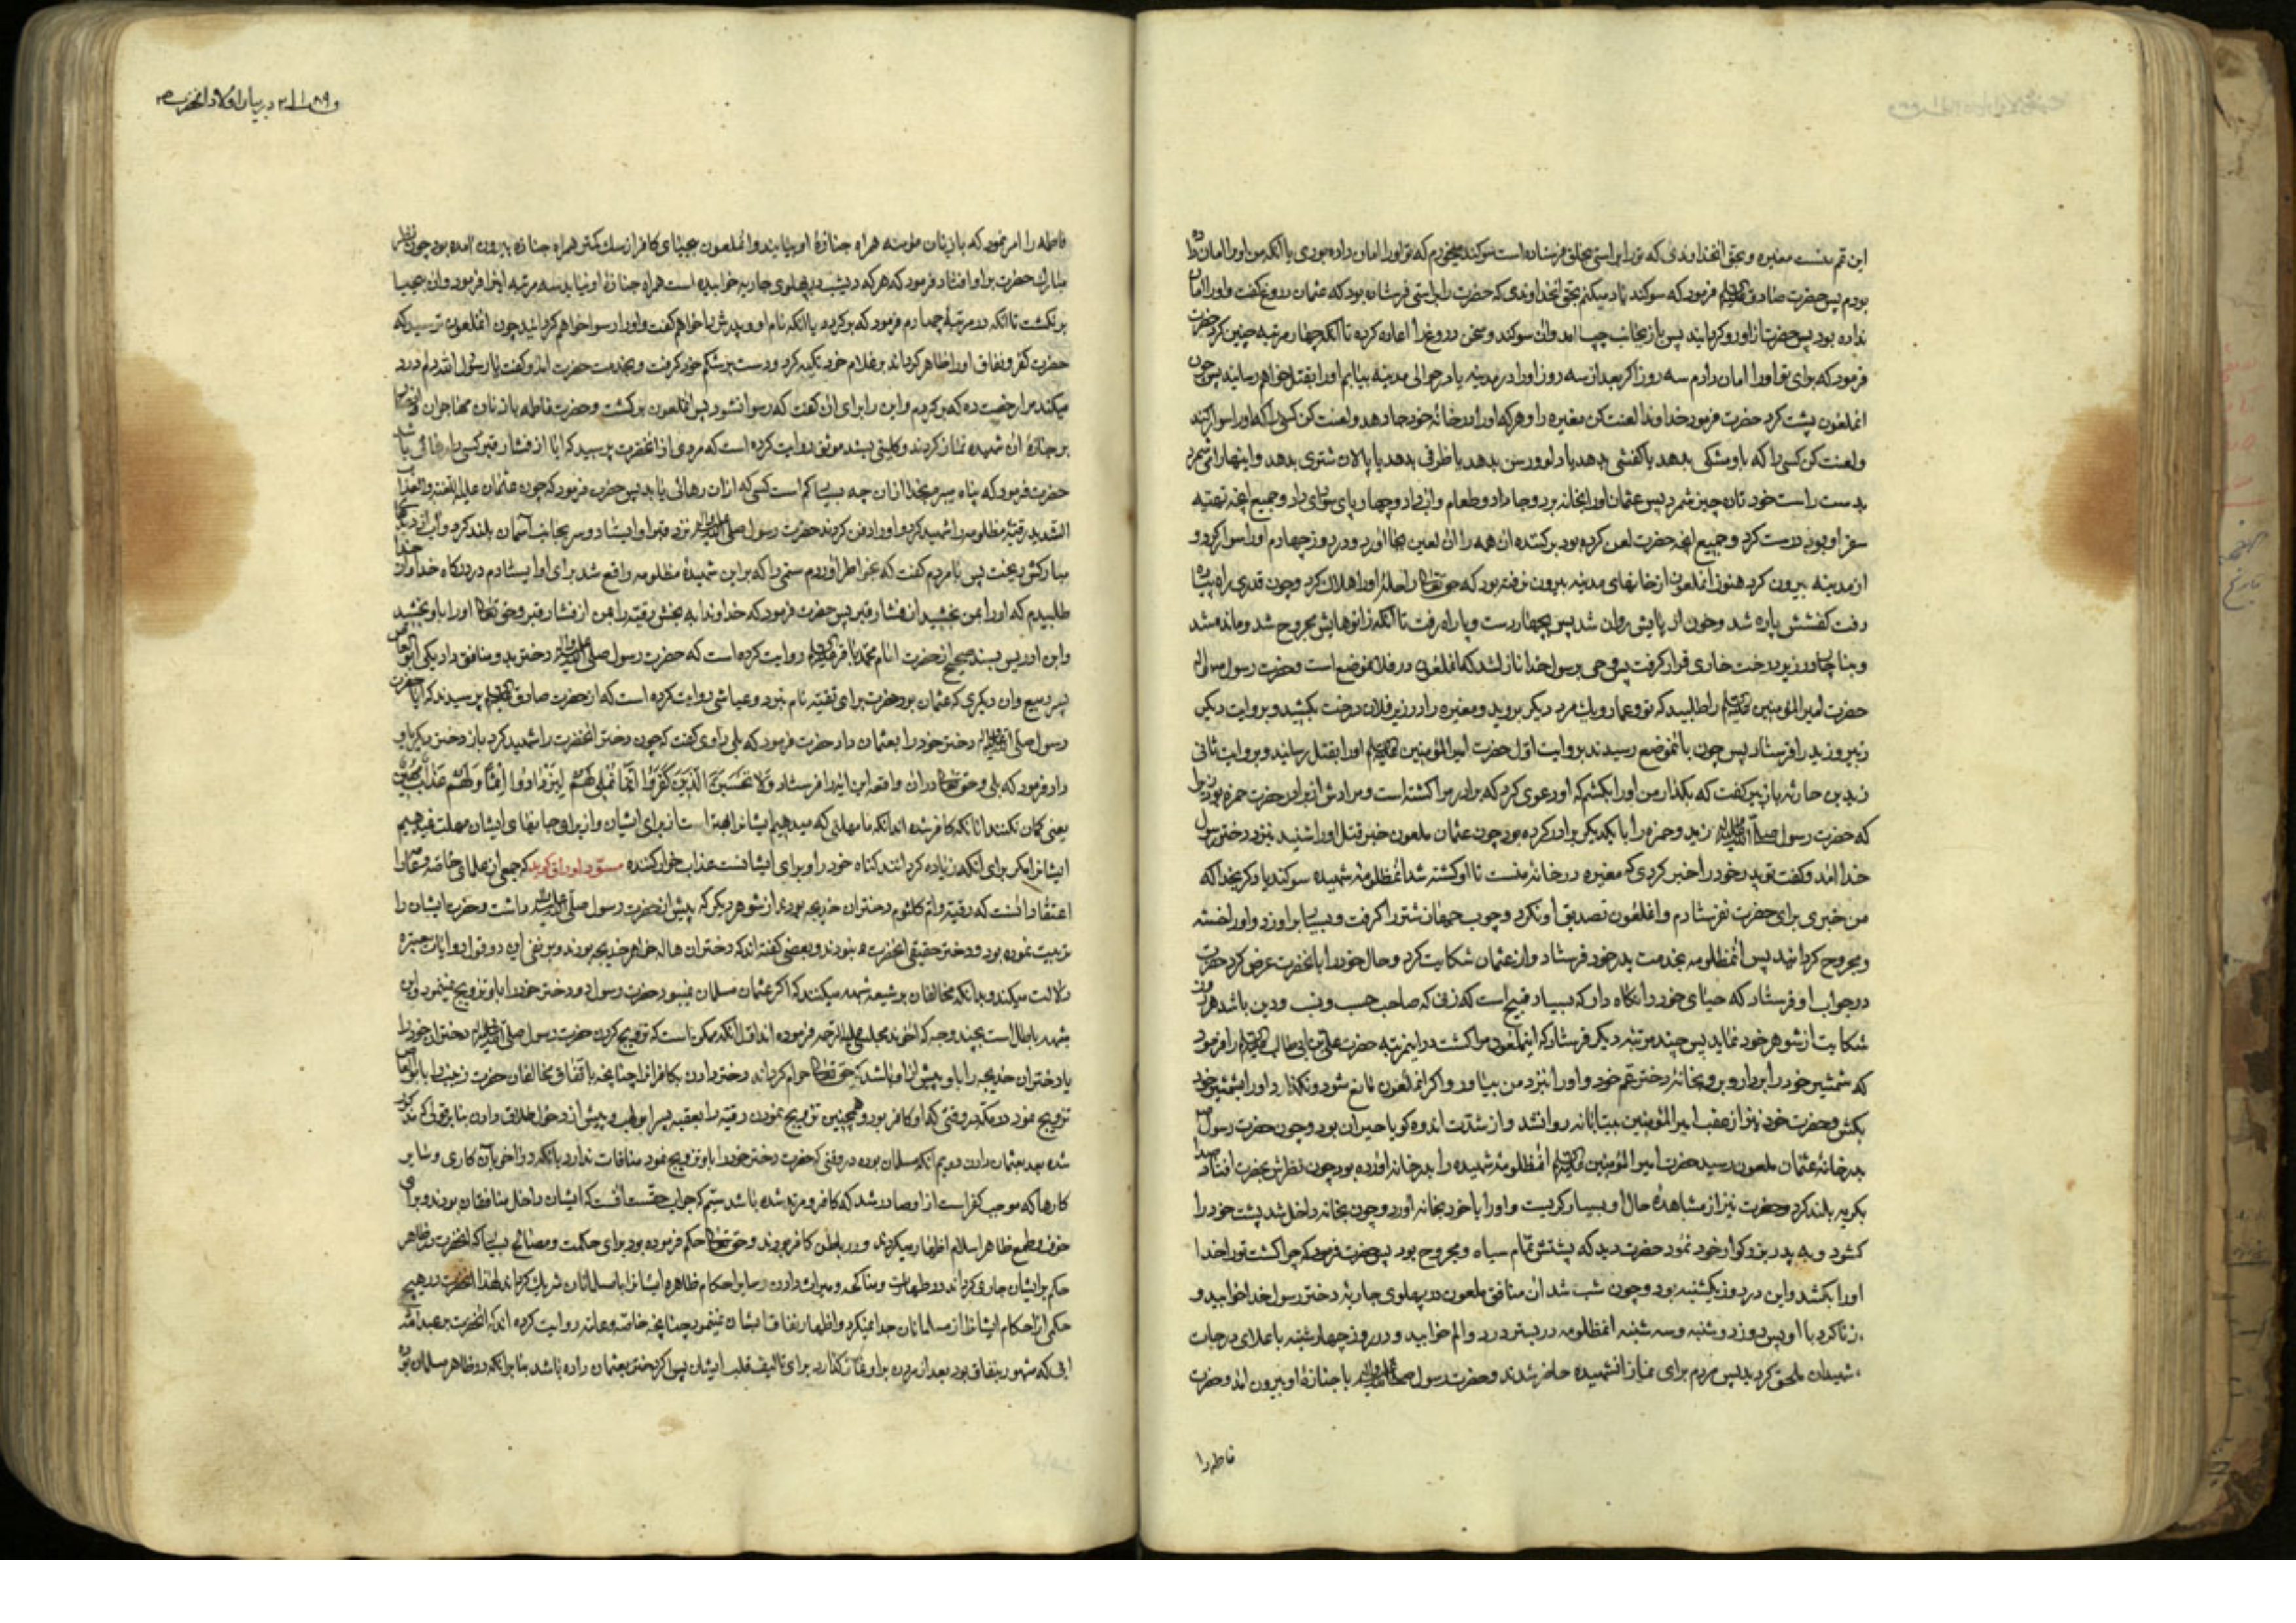 این قم بنست مغیره و بحق آنخداوندی که ترا براستی بخلق فرستاده است سوکند میخورم که تو اورا امان داده بودی یا آنکه من اورا امان داده
بودم پس حضرت صادق فرمود که سوکند یاد میکنم بحق آنخداوندی که حضرت را براستی فرستاده بود که عثمان دروغ کفت و اورا امان
نداده بود پس حضرت از او رو کردانید پس باز بجانب چپ آمد و آن سوکند و سخن دروغ را اعاده کرد تا آنکه چهار مرتبه چنین کرد حضرت
فرمود که برای تو اورا امان دادم سه روز اکر بعد از سه روز اورا در مدینه یا در حوالی مدینه بیابم اورا بقتل خواهم رسانید پس چون
آنملعون پشت کرد حضرت فرمود خداوندا لعنت کن مغیره را و هرکه اورا در خانه خود جا دهد و لعنت کن کسی را که اورا سوار کند
و لعنت کن کسی را که باو مشکی بدهد یا کفشی بدهد یا دلو و رسن بدهد یا ظرفی بدهد یا پالان شتری بدهد و اینها را می شمرد
بدست راست خود تا ده چیز شمرد پس عثمان اورا بخانه برد و جا داد و طعام و آب داد و چهار پای سواری داد و جمیع آنچه تهیه
سفر او بود درست کرد و جمیع آنچه حضرت لعن کرده بود بر کننده آن همه را آن لعین بجا آورد و در روز چهارم اورا سوار کرد و
از مدینه بیرون کرد هنوز آنملعون از خانهای مدینه بیرون نرفته بود که حق تعالی راحله اورا هلاک کرد و چون قدری راه پیاده
رفت کفشش پاره شد و خون از پایش روان شد پس بچهار دست و پا راه رفت تا آنکه زانوهایش مجروح شد و مانده شد
و بناچار در زیر درخت خاری قرار کرفت پس وحی برسول خدا نازل شد که آنملعون در فلان موضع است و حضرت رسول ص
حضرت امیر المؤمنین را طلبید که تو و عمار و یک مرد دیکر بروید و مغیره را در زیر فلان درخت بکشید و بروایت دیکر
زبیر و زید را فرستاد پس چون بآنموضع رسیدند بروایت اول حضرت امیر المؤمنین اورا بقتل رسانید و بروایت ثانی
زید بن حارثه بازبیر کفت که بکذار من اورا بکشم که او دعوی کرد که برادر مرا کشته است و مرادش از برادر حضرت حمزه بود زیرا
که حضرت رسول زید و حمزه را با یکدیکر برادر کرده بود چون عثمان ملعون خبر قتل اورا شنید بنزد دختر رسول
خدا آمد و کفت تو پدر خود را خبر کردی که مغیره در خانه منست تا او کشته شد آنمظلومه شهیده سوکند یاد کرد بخدا که
من خبری برای حضرت نفرستادم و آنملعون تصدیق او نکرد و چوب جهاز شتر را کرفت و بسیار بر او زد و اورا خسته
و مجروح کردانید پس آنمظلومه بخدمت پدر خود فرستاد و از عثمان شکایت کرد و حال خود را بآنحضرت عرض کرد حضرت
در جواب او فرستاد که حیای خود را نکاه دار که بسیار قبیح است که زنی که صاحب حسب و نسب و دین باشد هر روز
شکایت از شوهر خود نماید پس چند مرتبه دیکر فرستاد که اینملعون مرا کشت در اینمرتبه حضرت علی بن ابی طالب را فرمود
که شمشیر خود را بردار و برو بخانه دختر عم خود و اورا بنزد من بیاور و اکر آنملعون مانع شود و نکذارد اورا بشمشیر خود
بکش و حضرت خود نیز از عقب امیر المؤمنین بیتابانه روانشد و از شدت اندوه کویا حیران بود و چون حضرت رسول
بدر خانه عثمان ملعون رسید حضرت امیر المؤمنین آنمظلومه شهیده را بدر خانه آورده بود چون نظرش بحضرت افتاد صدا
بکریه بلند کرد و حضرت نیز از مشاهده حال او بسیار کریست و اورا با خود بخانه آورد و چون بخانه داخل شد پشت خود را
کشود و به پدر بزرکوار خود نمود حضرت دید که پشتش تمام سیاه و مجروح بود پس حضرت فرمود که چرا کشت تو را خدا
اورا بکشد و این در روز یکشنبه بود و چون شب شد آن منافق ملعون در پهلوی جاریه دختر رسول خدا خوابید و
زنا کرد با او پس روز دوشنبه و سه شنبه آنمظلومه در بستر درد و الم خوابید و در روز چهارشنبه باعلای درجات
شهیدان ملحق کردید پس مردم برای نماز آنشهیده حاضر شدند و حضرت رسول با جنازه او بیرون آمد و حضرت
فاطمه را
در بیان اولاد آنحضرت ص
فاطمه را امر نمود که بازنان مؤمنه همراه جنازه او بیایند و آنملعون بیحیای کافر از سک کمتر همراه جنازه بیرون آمده بود چون نظر
مبارک حضرت بر او افتاد فرمود که هرکه دیشب در پهلوی جاریه خوابیده است همراه جنازه او نیاید سه مرتبه اینرا فرمود و آن بیحیا
برنکشت تا آنکه در مرتبه چهارم فرمود که برکردد یا آنکه نام او و پدرش را خواهم کفت و اورا رسوا خواهم کردانید چون آنملعون ترسید که
حضرت کفر و نفاق اورا ظاهر کرداند بر غلام خود تکیه کرد و دست بر شکم خود کرفت و بخدمت حضرت آمد و کفت یا رسول الله دلم درد
میکند مرا رخصت ده که برکردم و این را برای آن کفت که رسوا نشود پس آنملعون برکشت و حضرت فاطمه با زنان مهاجران و انصار
بر جنازه آن شهیده نماز کردند و کلینی بسند موثق روایت کرده است که مردی از آنحضرت پرسید که آیا از فشار قبر کسی را رهائی باشد
حضرت فرمود که پناه میبرم بخدا از آن چه بسیار کم است کسی که از آن رهائی یابد پس حضرت فرمود که چون عثمان علیه اللعنه و العذاب
الشدید رقیه مظلومه را شهید کرد و اورا دفن کردند حضرت رسول نزد قبر او ایستاد و سر بجانب آسمان بلند کرد و آب از دیدهای
مبارکش ریخت پس بامردم کفت که بخاطر آوردم ستمی را که بر این شهیده مظلومه واقع شد برای او ایستادم در درکاه خدا و از خدا
طلبیدم که اورا بمن بخشید از فشار قبر پس حضرت فرمود که خداوندا به بخش رقیه را بمن از فشار قبر و حق تعالی اورا باو بخشید
و ابن ادریس بسند صحیح از حضرت امام محمد باقر روایت کرده است که حضرت رسول دختر بدو منافق داد یکی ابو العاص
پسر ربیع و آن دیکری که عثمان بود حضرت برای تقیه نام نبرد و عیاشی روایت کرده است که از حضرت صادق پرسیدند که آیا حضرت
رسول دختر خود را بعثمان داد حضرت فرمود که بلی راوی کفت که چون دختر آنحضرت را شهید کرد باز دختر دیکر باو
داد فرمود که بلی و حق تعالی در آن واقعه این آیه را فرستاد وَلَا تَحْسَبَنَّ الَّذِينَ كَفَرُوا أَنَّمَا نُمْلِي لَهُمْ لِيَزْدَادُوا إِثْمًا وَلَهُمْ عَذَابٌ مُهِينٌ
یعنی کمان نکنند آنانکه کافر شده اند آنکه ما مهلتی که میدهیم ایشانرا بهتر است از برای ایشان مهلت نمیدهیم
ایشانرا مکر برای آنکه زیاده کردانند کناه خود را و برای ایشانست عذاب خوار کننده مسود اوراق کوید که جمعی از علمای خاصه و عامه را
اعتقاد آنست که رقیه و ام کلثوم دختران خدیجه بودند از شوهر دیکر که پیش از حضرت رسول داشت و حضرت ایشان را
تربیت نموده بود و دختر حقیقی آنحضرت نبودند و بعضی کفته اند که دختران هاله خواهر خدیجه بودند و بر نفی این دو قول روایات معتبره
دلالت میکند و بدانکه مخالفان بر شیعه شبهه میکنند که اکر عثمان مسلمان نمیبود حضرت رسول دو دختر خود را باو تزویج نمینمود و این
شبهه باطل است بچند وجه که آخوند مجلسی علیه الرحمه فرموده اند اول آنکه ممکن است که تزویج کردن حضرت رسول دختران خود را
یا دختران خدیجه را باو پیش از آن باشد که حق تعالی حرام کرداند دختر دادن بکافرانرا چنانچه باتفاق مخالفان حضرت زینب را بابو العاص
تزویج نمود در مکه در وقتی که او کافر بود و همچنین تزویج نمودن رقیه را بعتبه پسر ابو لهب و پیش از دخول طلاق دادن بنابر قولی که مذکور
شده بعد بعثمان دادن دویم آنکه مسلمان بوده در وقتی که حضرت دختر خود را باو تزویج نمود منافات ندارد بآنکه در آخر بآن کاری و سایر
کارها که موجب کفر است از او صادر شد که کافر و مرتد شده باشد سیم که جواب حقست آنست که ایشان داخل منافقان بودند و برای
خوف و طمع ظاهر اسلام اظهار میکردند و در باطن کافر بودند و حق تعالی حکم فرموده بود برای حکمت و مصالح بسیار که آنحضرت در ظاهر
حکم بر ایشان جاری کرداند در طهارت و مناکحه و میراث دادن و سایر احکام ظاهره ایشانرا با مسلمانان شریک کرداند لهذا آنحضرت در هیچ
حکمی از احکام ایشانرا از مسلمانان جدا نمیکرد و اظهار نفاق ایشان نمینمود چنانچه خاصه و عامه روایت کرده اند که آنحضرت بر عبد الله
ابی که مشهور بنفاق بود بعد از مردن بر او نماز کذارد برای تالیف قلب ایشان پس اکر دختر بعثمان داده باشد بنابر آنکه در ظاهر مسلمان بود